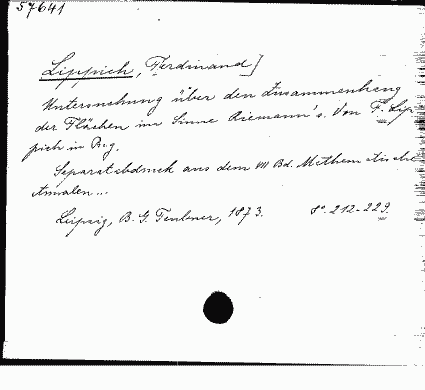 57641
Lippich, Ferdinand]
Untersuchung über den Zusammenhang
der Flächen im Sinne Riemann's. Von F. Lip
pich in Prg.
Separatabdruck aus dem VII Bd. Mathematische
Annalen...
Leipzig, B. G. Teubner, 1873. 8°. 212-229.